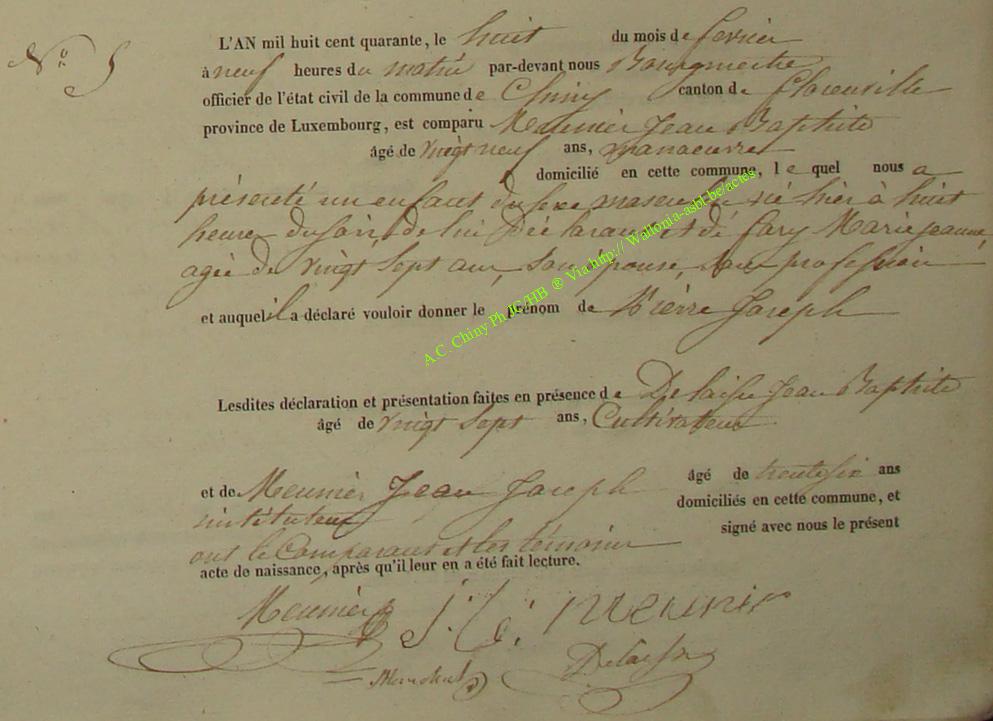 N° 5
L'AN mil huit cent quarante, le huit du mois de fevrier
à neuf heures du matin par-devant nous Bourgmestre
officier de l'état civil de la commune de Chiny canton de Florenville
province de Luxembourg, est comparu Meunier Jean Baptiste
âgé de vingt neuf ans, manoeuvre
domicilié en cette commune, le quel nous a
présenté un enfant du sexe masculin né hier à huit
heures du soir, de lui déclarant et de Cary Marie Jeanne,
agée de vingt sept ans, son épouse, sans profession
et auquel il a déclaré vouloir donner le prénom de Pierre Joseph
A.C. Chiny Ph.JG/HB ® Via http:// Wallonia-asbl.be/actes
Lesdites déclaration et présentation faites en présence de Delaisse Jean Baptiste
âgé de vingt sept ans, Cultivateur
et de Meunier Jean Joseph âgé de trente six ans
instituteur domiciliés en cette commune, et
ont le Comparant et les témoins signé avec nous le présent
acte de naissance, après qu'il leur en a été fait lecture.
Meunier J. B. meunier
Delaisse